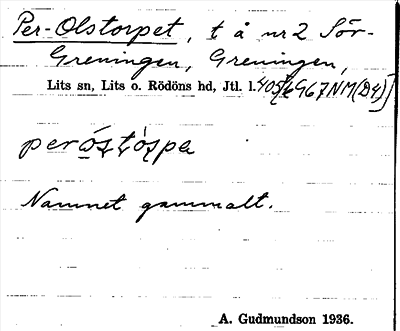 Per-Olstorpet, t å nr 2 Sör-
Greningen, Greningen,
Lits sn, Lits o. Rödöns hd, Jtl. l.
peróştọ́rpa
Namnet gammalt.
A. Gudmundson 1936.